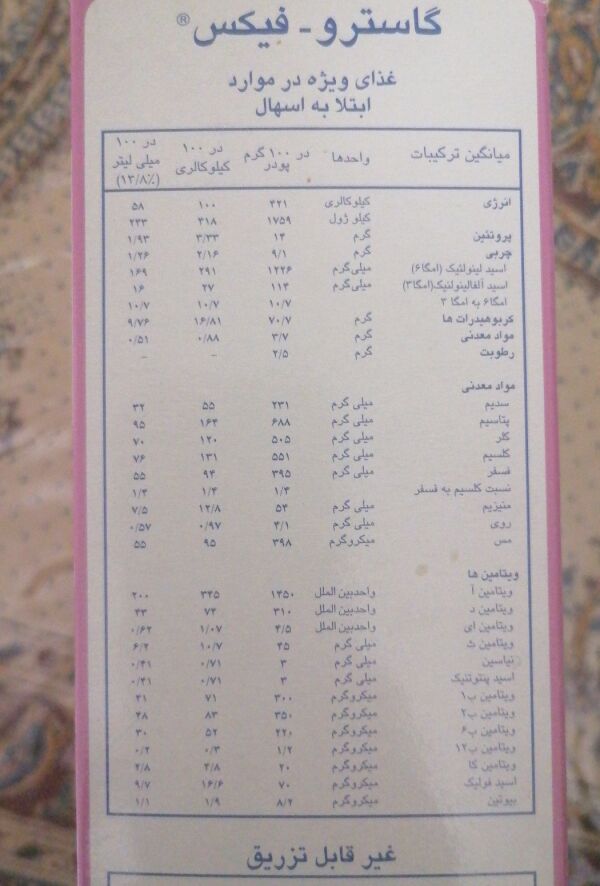 گاسترو - فیکس®
غذای ویژه در موارد
ابتلا به اسهال
میانگین ترکیبات واحدها در ۱۰۰ گرم پودر در ۱۰۰ کیلوکالری در ۱۰۰ میلی لیتر (۱۳/۸٪)
انرژی کیلوکالری ۴۲۱ ۱۰۰ ۵۸
کیلو ژول ۱۷۵۹ ۴۱۸ ۲۴۳
پروتئین گرم ۱۴ ۳/۳۳ ۱/۹۳
چربی گرم ۹/۱ ۲/۱۶ ۱/۲۶
اسید لینولئیک (امگا۶) میلی‌گرم ۱۲۲۶ ۲۹۱ ۱۶۹
اسید آلفالینولنیک(امگا۳) میلی‌گرم ۱۱۴ ۲۷ ۱۶
امگا۶ به امگا ۳ ۱۰/۷ ۱۰/۷ ۱۰/۷
کربوهیدرات ها گرم ۷۰/۷ ۱۶/۸۱ ۹/۷۶
مواد معدنی گرم ۳/۷ ۰/۸۸ ۰/۵۱
رطوبت گرم ۲/۵ - -
مواد معدنی
سدیم میلی گرم ۲۳۱ ۵۵ ۳۲
پتاسیم میلی گرم ۶۸۸ ۱۶۴ ۹۵
کلر میلی گرم ۵۰۵ ۱۲۰ ۷۰
کلسیم میلی گرم ۵۵۱ ۱۳۱ ۷۶
فسفر میلی گرم ۳۹۵ ۹۴ ۵۵
نسبت کلسیم به فسفر ۱/۴ ۱/۴ ۱/۴
منیزیم میلی گرم ۵۴ ۱۲/۸ ۷/۵
روی میلی گرم ۴/۱ ۰/۹۷ ۰/۵۷
مس میکروگرم ۳۹۸ ۹۵ ۵۵
ویتامین ها
ویتامین آ واحدبین الملل ۱۴۵۰ ۳۴۵ ۲۰۰
ویتامین د واحدبین الملل ۳۱۰ ۷۴ ۴۳
ویتامین ای واحدبین الملل ۴/۵ ۱/۰۷ ۰/۶۲
ویتامین ث میلی گرم ۴۵ ۱۰/۷ ۶/۲
نیاسین میلی گرم ۳ ۰/۷۱ ۰/۴۱
اسید پنتوتنیک میلی گرم ۳ ۰/۷۱ ۰/۴۱
ویتامین ب۱ میکروگرم ۳۰۰ ۷۱ ۴۱
ویتامین ب۲ میکروگرم ۳۵۰ ۸۳ ۴۸
ویتامین ب۶ میکروگرم ۲۲۰ ۵۲ ۳۰
ویتامین ب۱۲ میکروگرم ۱/۲ ۰/۳ ۰/۲
ویتامین کا میکروگرم ۲۰ ۴/۸ ۲/۸
اسید فولیک میکروگرم ۷۰ ۱۶/۶ ۹/۷
بیوتین میکروگرم ۸/۲ ۱/۹ ۱/۱
غیر قابل تزریق